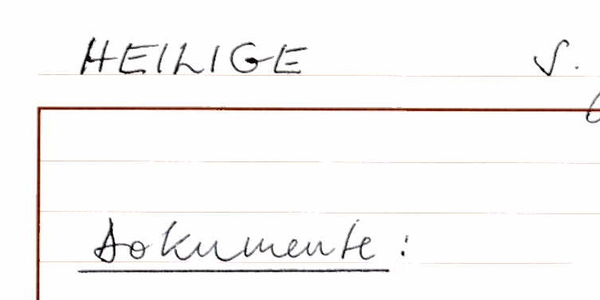 HEILIGE S.
Dokumente: